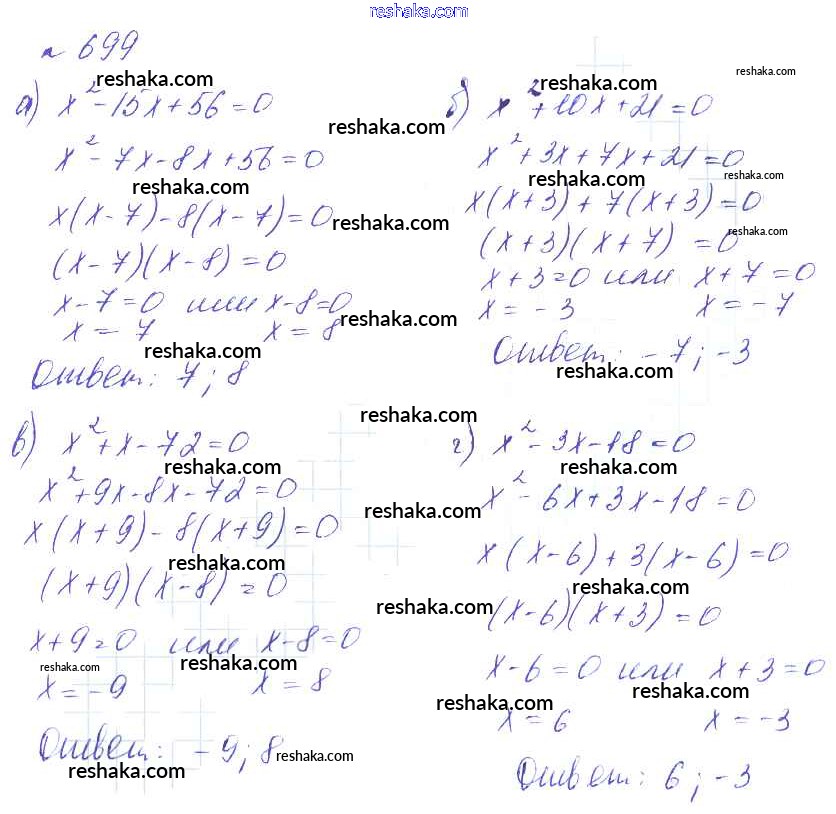 reshaka.com
№ 699
reshaka.com
а) x² - 15x + 56 = 0
reshaka.com
x² - 7x - 8x + 56 = 0
reshaka.com
x(x - 7) - 8(x - 7) = 0
reshaka.com
(x - 7)(x - 8) = 0
x - 7 = 0 или x - 8 = 0
reshaka.com
x = 7 x = 8
reshaka.com
Ответ: 7; 8
reshaka.com
reshaka.com
б) x² + 10x + 21 = 0
x² + 3x + 7x + 21 = 0
reshaka.com
reshaka.com
x(x + 3) + 7(x + 3) = 0
reshaka.com
(x + 3)(x + 7) = 0
x + 3 = 0 или x + 7 = 0
x = -3 x = -7
Ответ: -7; -3
reshaka.com
reshaka.com
в) x² + x - 72 = 0
reshaka.com
x² + 9x - 8x - 72 = 0
reshaka.com
x(x + 9) - 8(x + 9) = 0
reshaka.com
(x + 9)(x - 8) = 0
x + 9 = 0 или x - 8 = 0
reshaka.com
reshaka.com
x = -9 x = 8
Ответ: -9; 8
reshaka.com
reshaka.com
г) x² - 3x - 18 = 0
reshaka.com
x² - 6x + 3x - 18 = 0
x(x - 6) + 3(x - 6) = 0
reshaka.com
reshaka.com
(x - 6)(x + 3) = 0
x - 6 = 0 или x + 3 = 0
reshaka.com
reshaka.com
x = 6 x = -3
Ответ: 6; -3